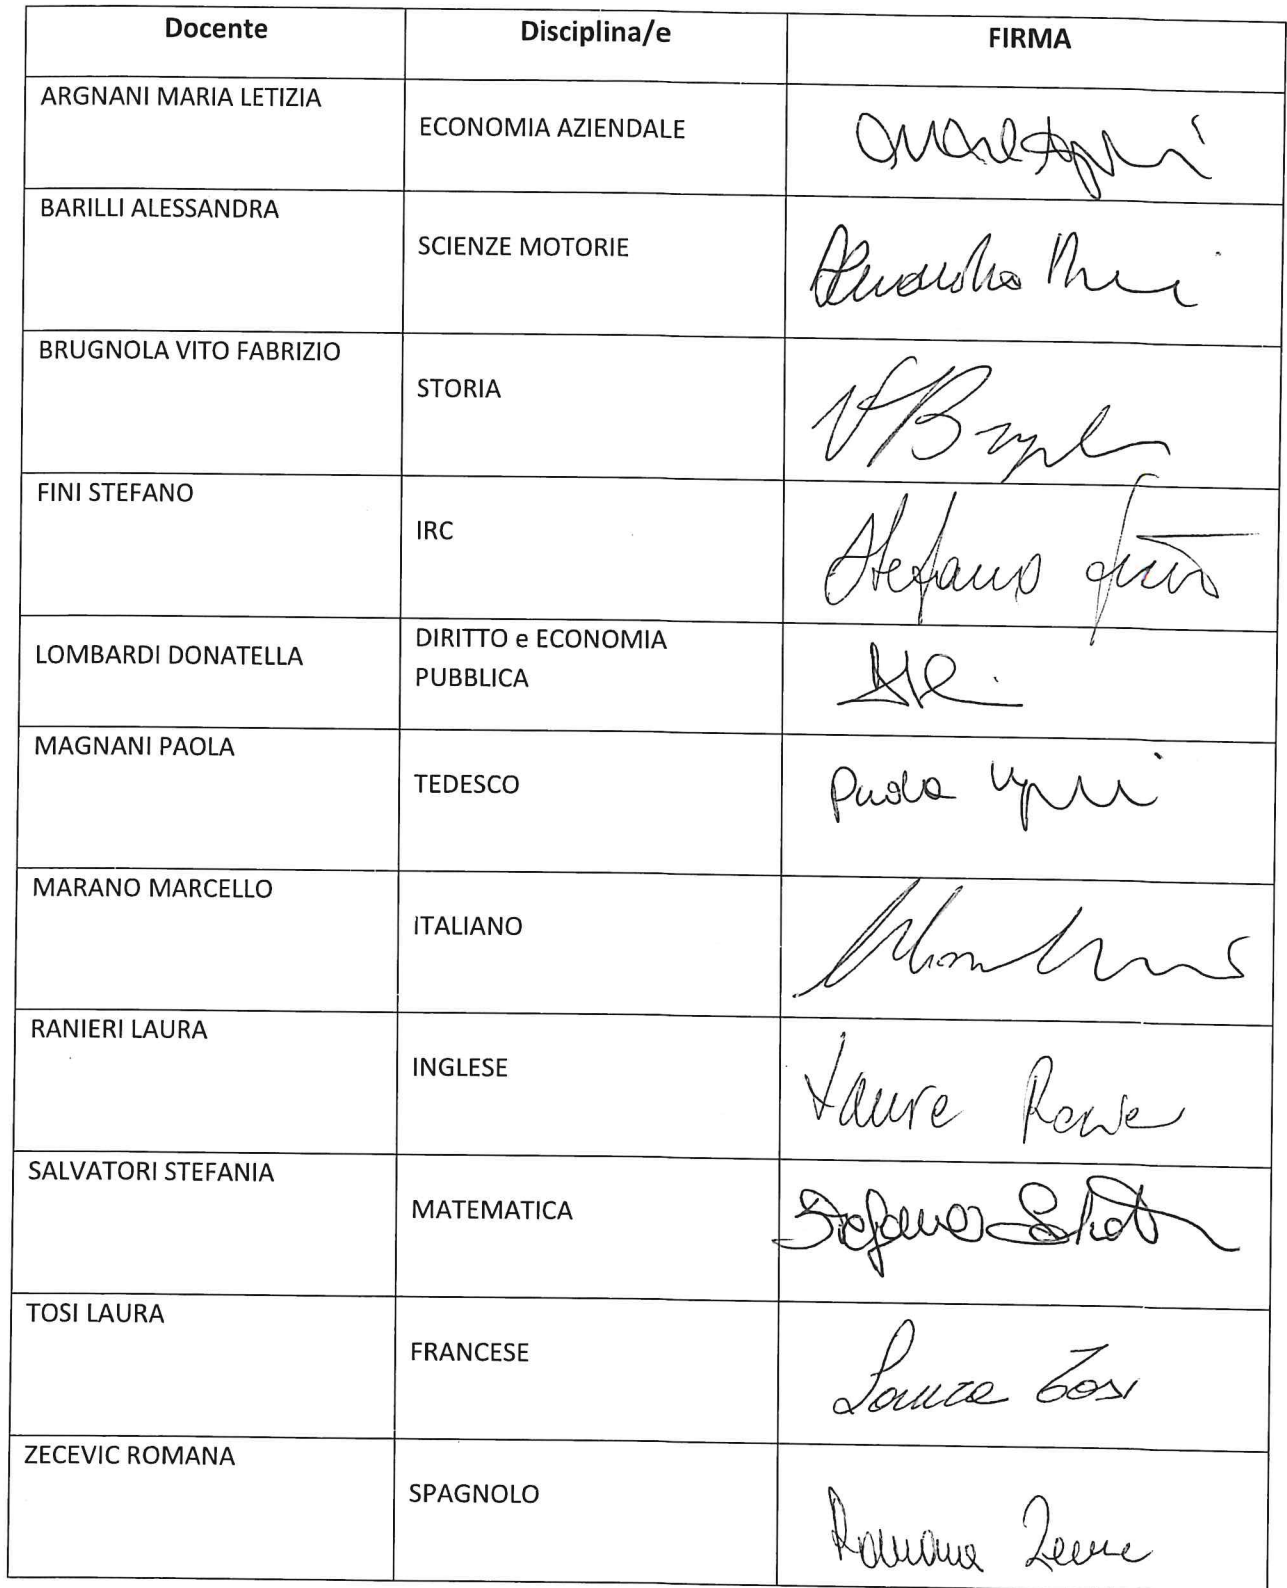 Docente Disciplina/e FIRMA
ARGNANI MARIA LETIZIA
ECONOMIA AZIENDALE
BARILLI ALESSANDRA
SCIENZE MOTORIE
BRUGNOLA VITO FABRIZIO
STORIA
FINI STEFANO
IRC
Stefano
LOMBARDI DONATELLA
DIRITTO e ECONOMIA
PUBBLICA
MAGNANI PAOLA
TEDESCO
Paola
MARANO MARCELLO
ITALIANO
RANIERI LAURA
INGLESE
Laura
SALVATORI STEFANIA
MATEMATICA
TOSI LAURA
FRANCESE
Laura Tosi
ZECEVIC ROMANA
SPAGNOLO
Romana